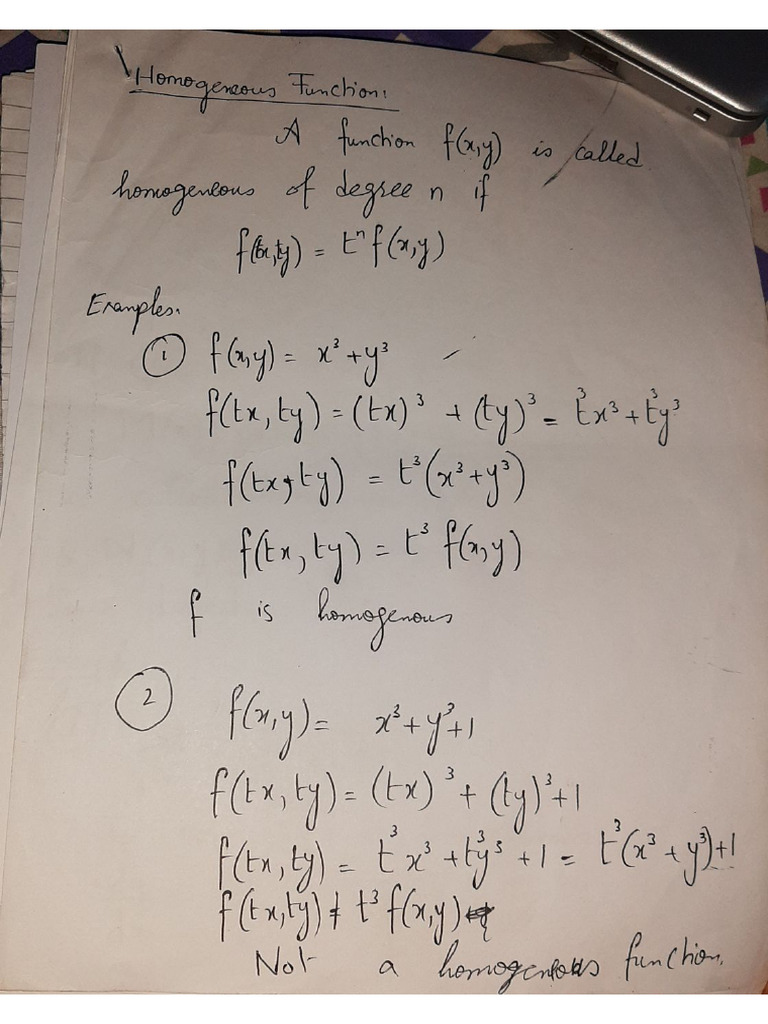 Homogeneous Function:
A function f(x,y) is called
homogeneous of degree n if
f(tx,ty) = tⁿ f(x,y)
Examples.
① f(x,y) = x³ + y³
f(tx, ty) = (tx)³ + (ty)³ = t³x³ + t³y³
f(tx, ty) = t³(x³ + y³)
f(tx, ty) = t³ f(x,y)
f is homogenous
② f(x,y) = x³ + y³ + 1
f(tx, ty) = (tx)³ + (ty)³ + 1
f(tx, ty) = t³x³ + t³y³ + 1 = t³(x³ + y³) + 1
f(tx,ty) ≠ t³ f(x,y)
Not a homogeneous function.